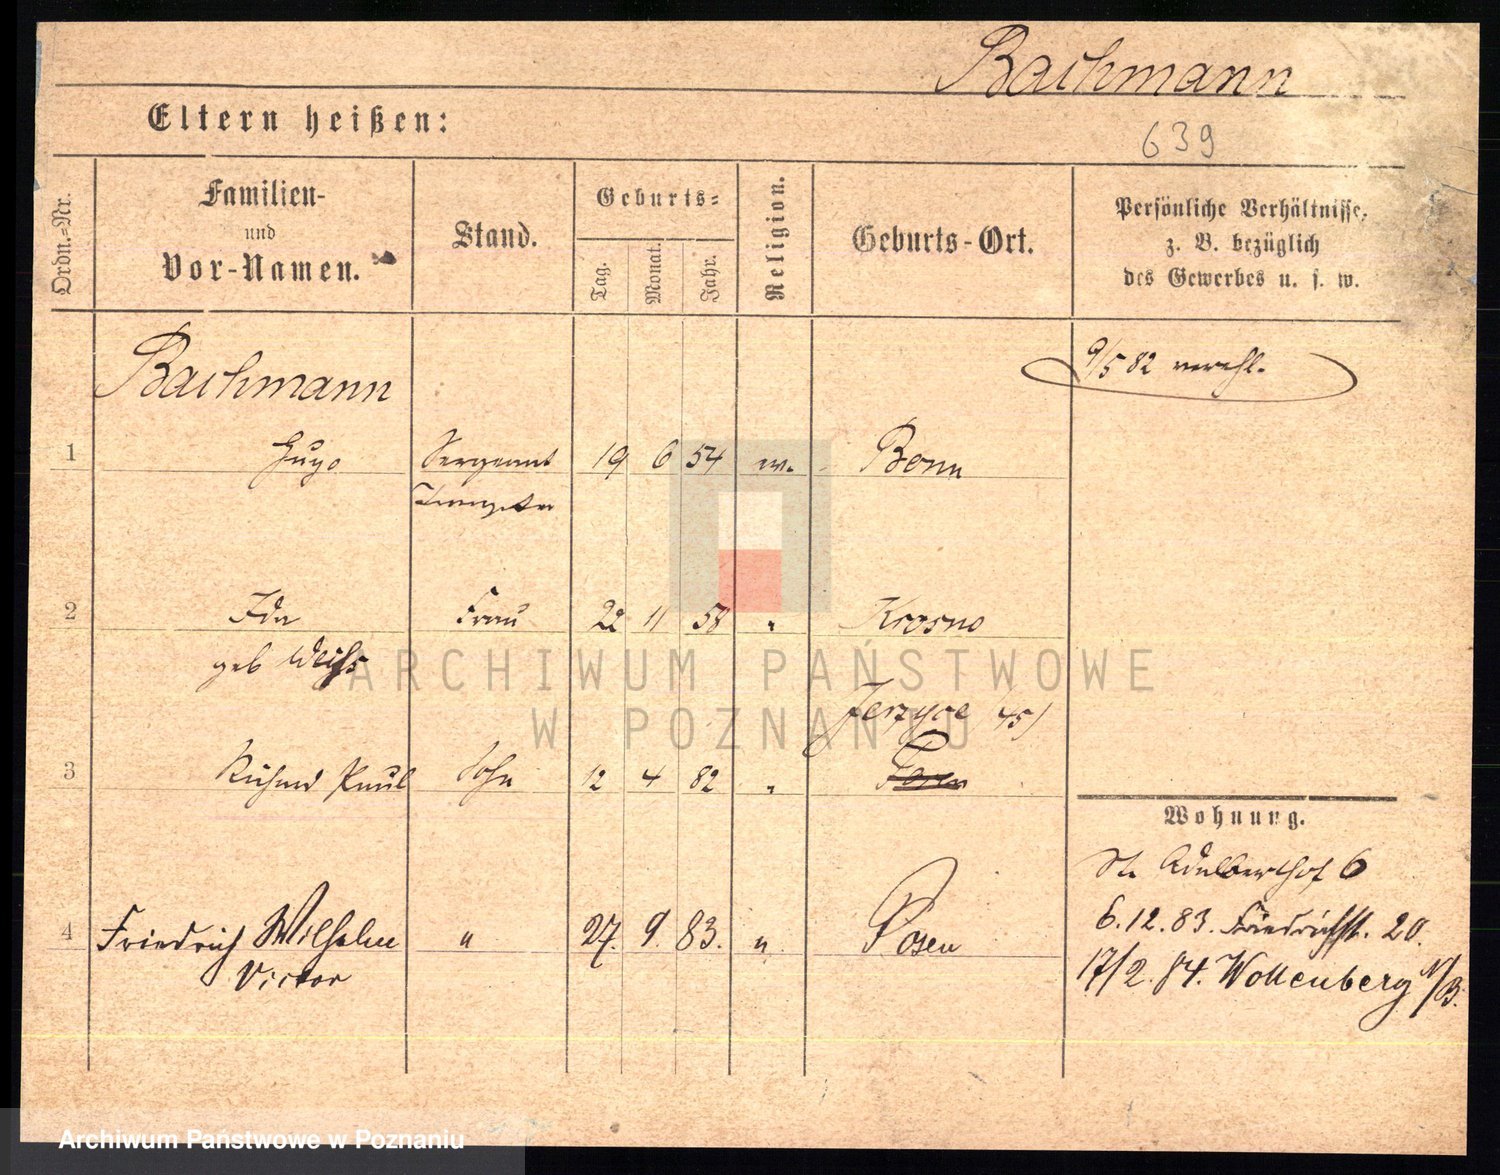 Bachmann
Eltern heißen:
639
Ordn.-Nr.
Familien-
und
Vor-Namen.
Stand.
Geburts-
Tag.
Monat.
Jahr.
Religion.
Geburts-Ort.
Persönliche Verhältnisse,
z. B. bezüglich
des Gewerbes u. s. w.
Bachmann
9/5 82 verehl.
1 Hugo Sergeant 19 6 54 ev. Bonn
2 Ida Frau 22 11 58 " Krosno
geb Weiß
ARCHIWUM PAŃSTWOWE
W POZNANIU
Jerzyce 45)
3 Richard Paul Sohn 12 4 82 " Posen
Wohnung.
St. Adalberthof 6
4 Friedrich Wilhelm " 27. 9. 83. " Posen
Victor
6.12.83. Friedrichst. 20.
17/2.84. Woldenberg N/B.
Archiwum Państwowe w Poznaniu